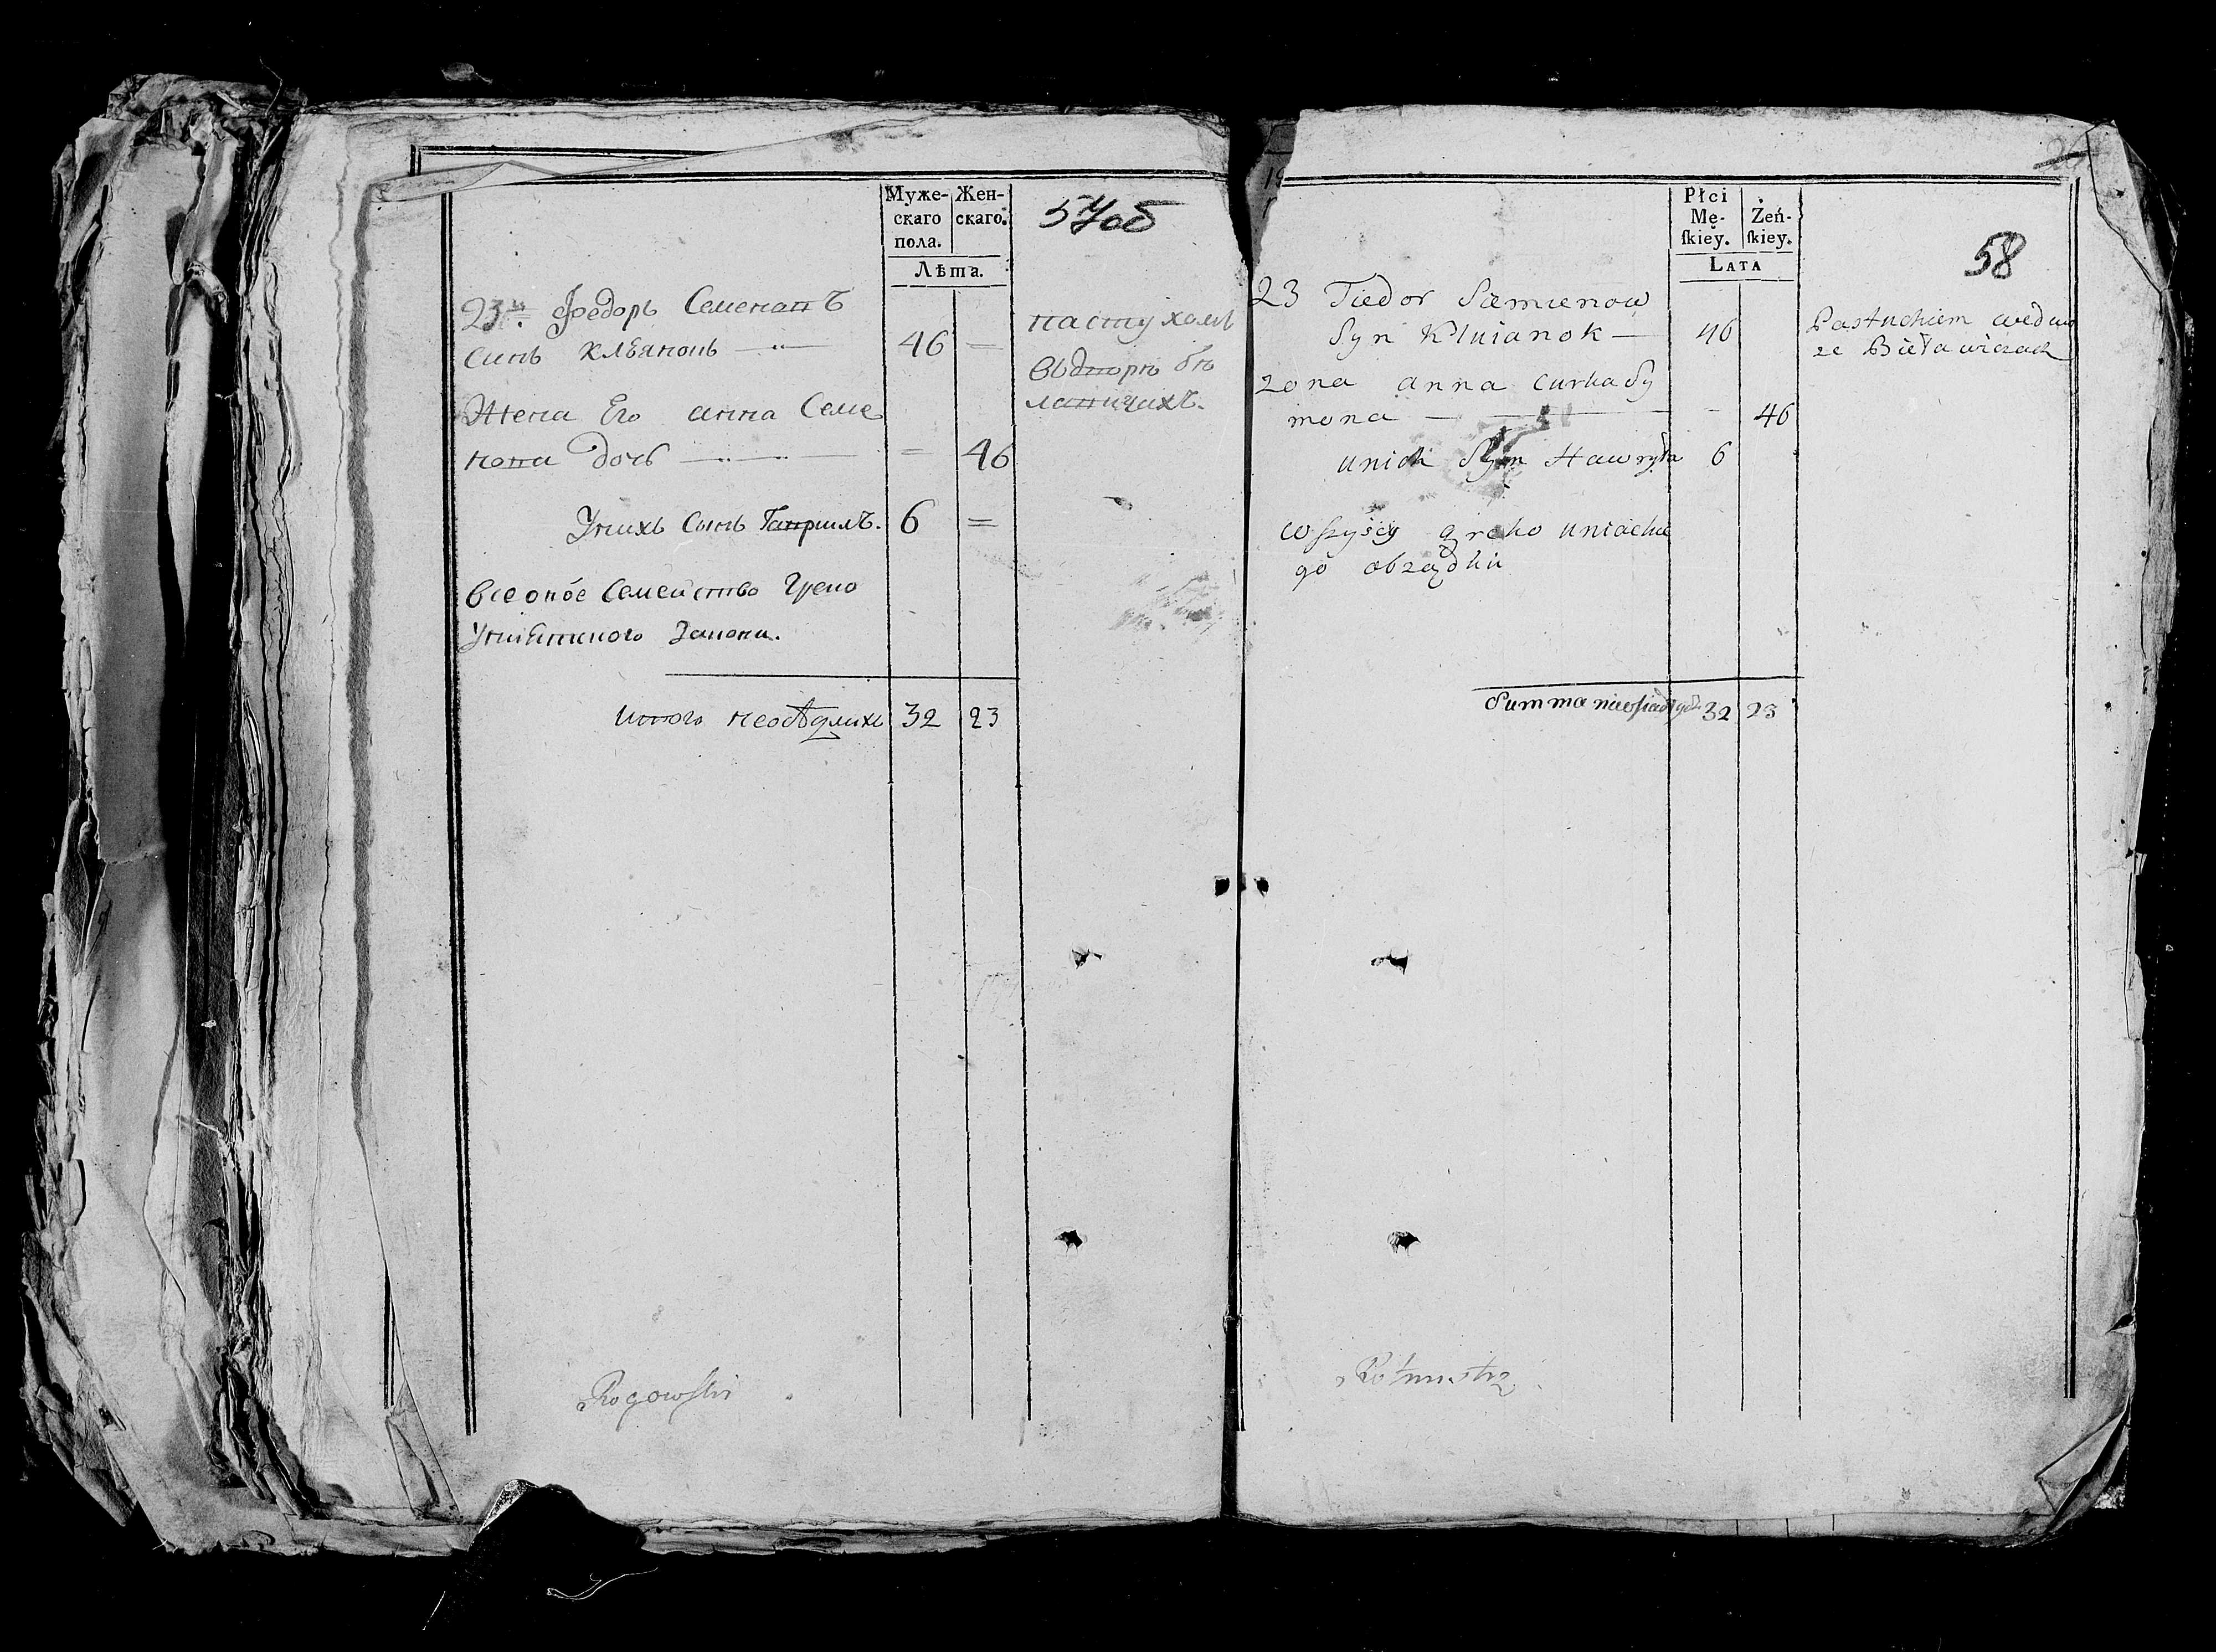 Муже-
скаго
пола.
Жен-
скаго.
Лѣта.
57об
23й. Федоръ Семеновъ
сынъ Клвянокъ 46 =
пастухомъ
въдворѣ бѣ
лавичахъ.
Жена Его анна Семе
нова дочь = 46
Унихъ Сынъ Гавриилъ. 6 =
Все оное Семейство Греко
Униятского Закона.
Итого неосѣдлихъ 32 23
Rogowski
Płci
Mę-
ſkiey.
Żeń-
ſkiey.
LATA
58
23 Fiedor Siemienow
Syn Klwianok 46
Pastuchiem
ze Bieławiczach
zona anna curka Sy
mona 46
unich Syn Hawryła 6
wszyscy greko uniackie
go obrządku
Summa nieosiadłych 32 23
Rotmistrz